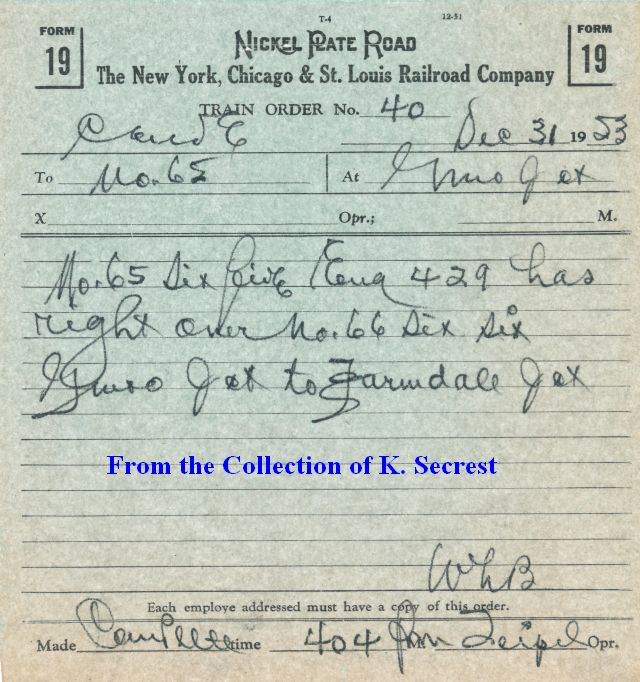 T-4 12-51
FORM 19
NICKEL PLATE ROAD
FORM 19
The New York, Chicago & St. Louis Railroad Company
TRAIN ORDER No. 40
C and E Dec 31 1953
To No. 65 At Gmo Jct
X Opr.; M.
No. 65 Six five Eng 429 has
right over No. 66 Six Six
Gmo Jct to Farmdale Jct
From the Collection of K. Secrest
WLB
Each employe addressed must have a copy of this order.
Made Complete time 404 M Opr.